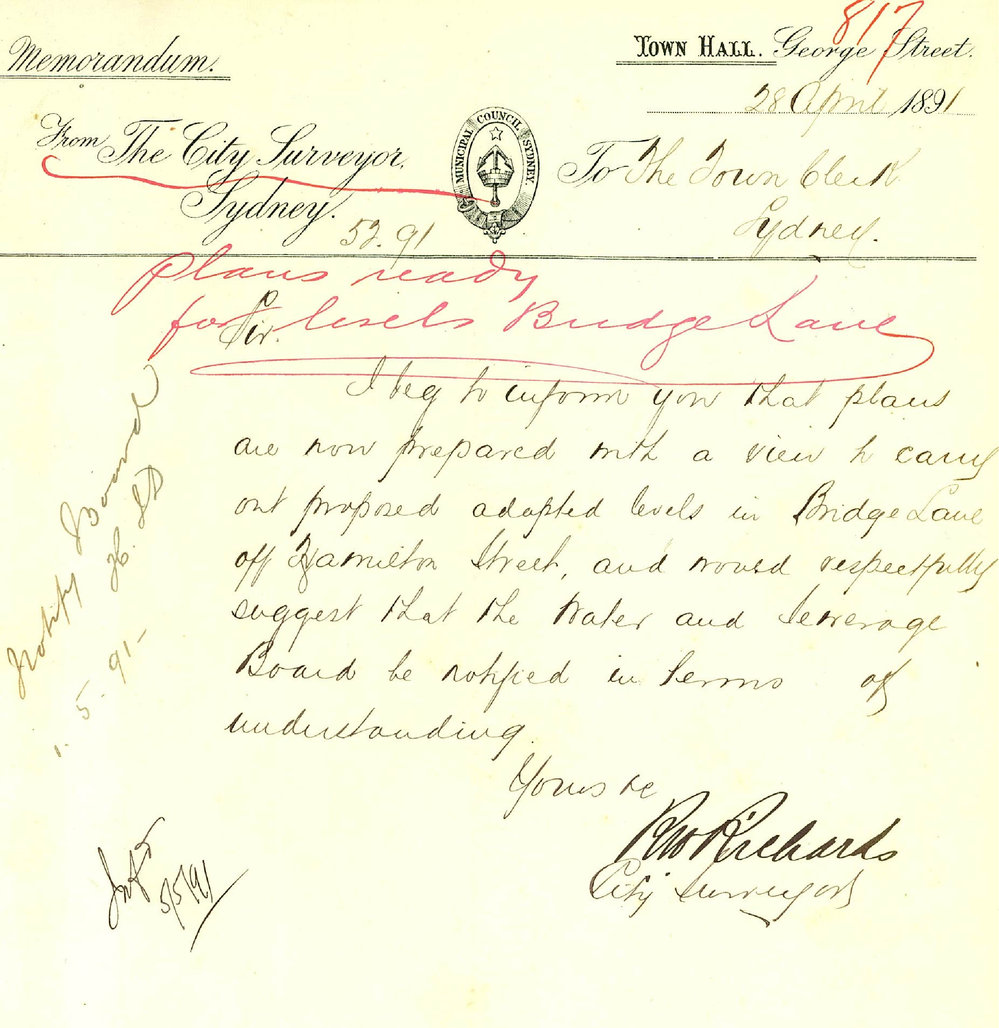 817
Memorandum.
TOWN HALL. George Street.
28 April 1891
From The City Surveyor,
Sydney.
MUNICIPAL COUNCIL SYDNEY.
To The Town Clerk
Sydney.
52.91
plans ready
for levels Bridge Lane
Sir.
I beg to inform you that plans
are now prepared with a view to carry
out proposed adopted levels in Bridge Lane
off Hamilton Street, and would respectfully
suggest that the Water and Sewerage
Board be notified in terms of
understanding.
Yours &c
RW Richards
City Surveyor
Notify Board
1.5.91-
5/5/91